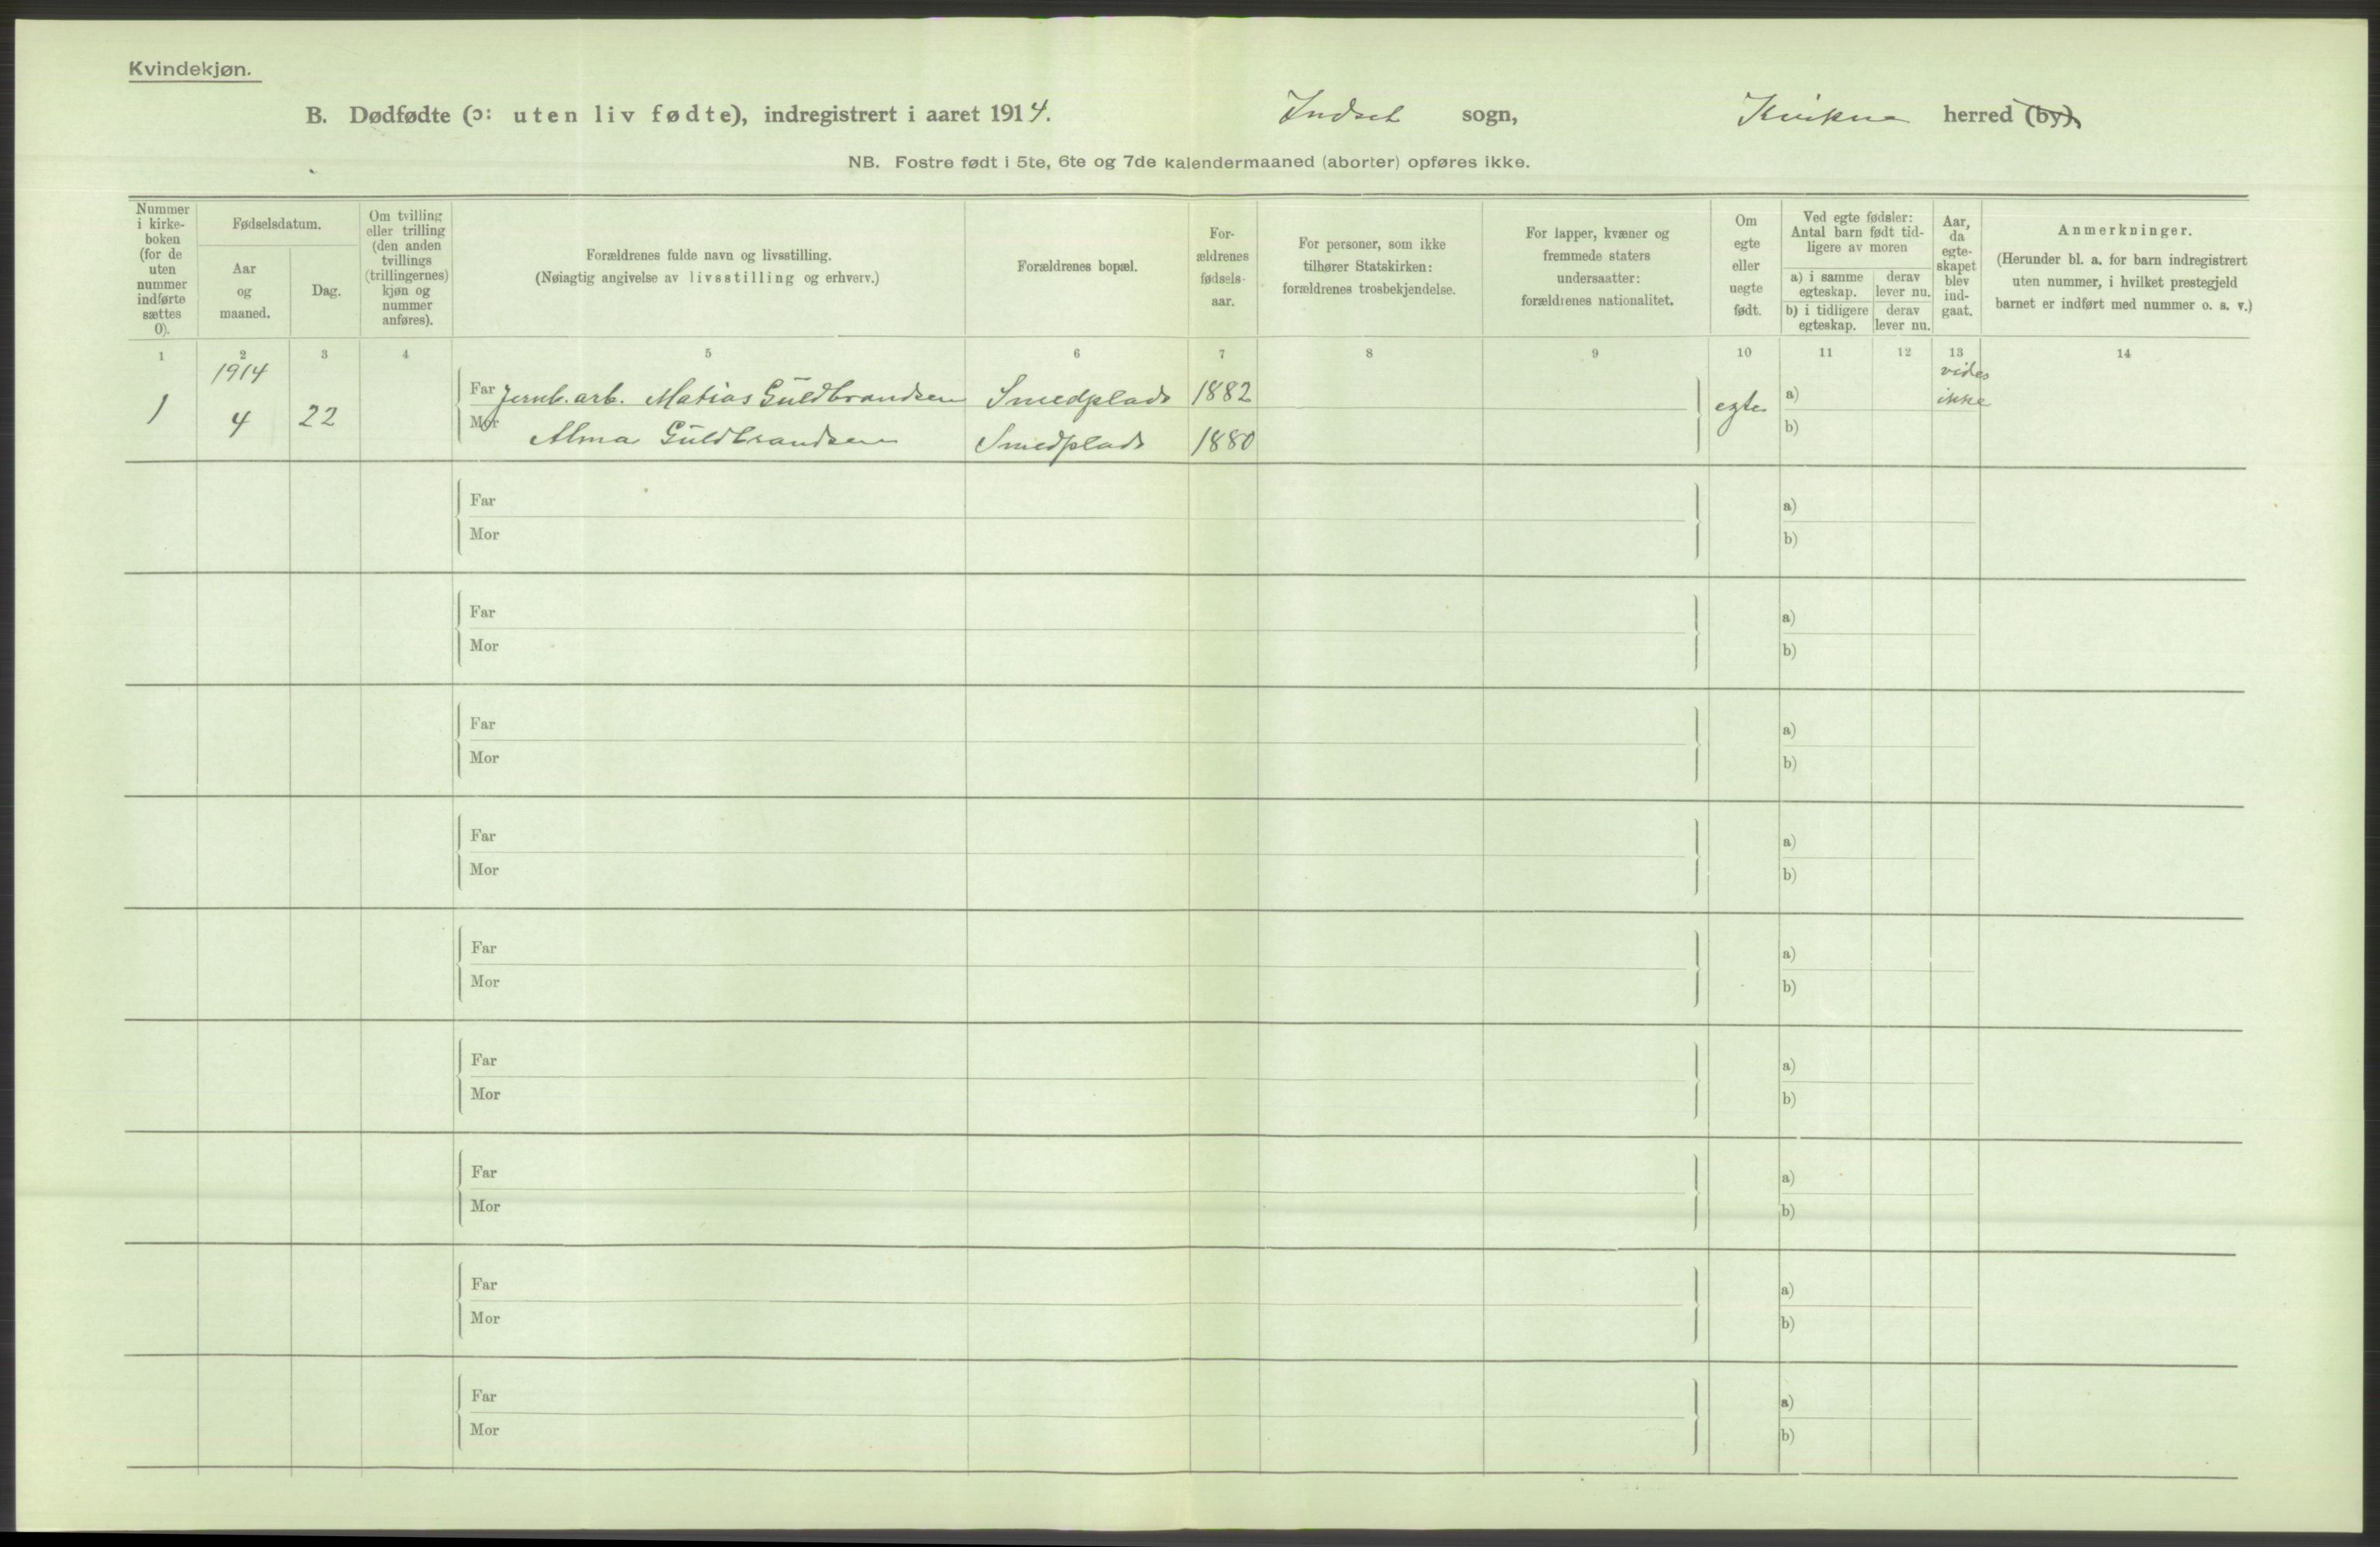 Kvindekjøn.
B. Dødfødte (ɔ: uten liv fødte), indregistrert i aaret 1914. Indset sogn, Kvikne herred (by).
NB. Fostre født i 5te, 6te og 7de kalendermaaned (aborter) opføres ikke.
Nummer i kirke-boken (for de uten nummer indførte sættes 0).
Fødselsdatum.
Aar og maaned.
Dag.
Om tvilling eller trilling (den anden tvillings (trillingernes) kjøn og nummer anføres).
Forældrenes fulde navn og livsstilling.
(Nøiagtig angivelse av livsstilling og erhverv.)
Forældrenes bopæl.
For-ældrenes fødsels-aar.
For personer, som ikke tilhører Statskirken: forældrenes trosbekjendelse.
For lapper, kvæner og fremmede staters undersaatter: forældrenes nationalitet.
Om egte eller uegte født.
Ved egte fødsler: Antal barn født tid-ligere av moren
a) i samme egteskap.
derav lever nu.
b) i tidligere egteskap.
derav lever nu.
Aar, da egte-skapet blev ind-gaat.
Anmerkninger.
(Herunder bl. a. for barn indregistrert uten nummer, i hvilket prestegjeld barnet er indført med nummer o. s. v.)
1 2 3 4 5 6 7 8 9 10 11 12 13 14
1914 vides
1 4 22 Far Jernb. arb. Matias Güldbrandsen Smedplads 1882 egte a) ikke
Mor Alma Güldbrandsen Smedplads 1880 b)
Far a)
Mor b)
Far a)
Mor b)
Far a)
Mor b)
Far a)
Mor b)
Far a)
Mor b)
Far a)
Mor b)
Far a)
Mor b)
Far a)
Mor b)
Far a)
Mor b)